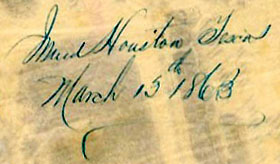 Houston Texas
March 15th 1863